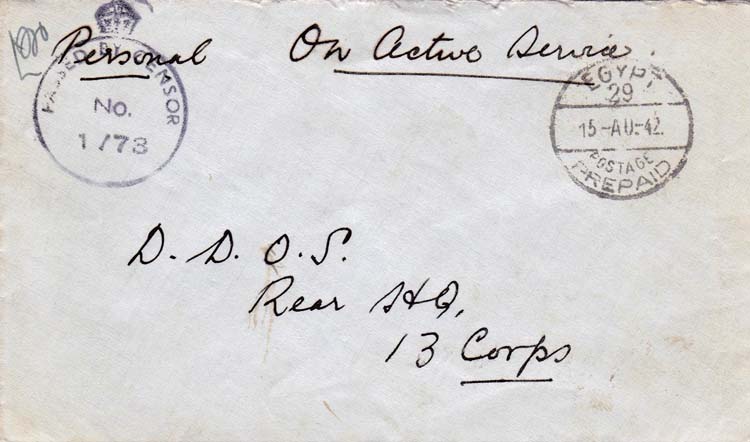 Personal On Active Service.
PASSED BY CENSOR
No.
1773
EGYPT
29
15-AU-42
POSTAGE
PREPAID
D. D. O. S.
Rear HQ,
13 Corps